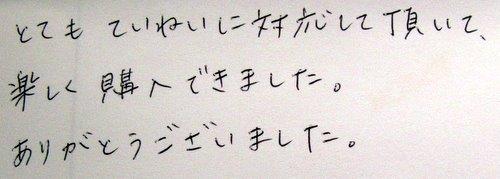 とても ていねいに対応して頂いて、
楽しく購入できました。
ありがとうございました。